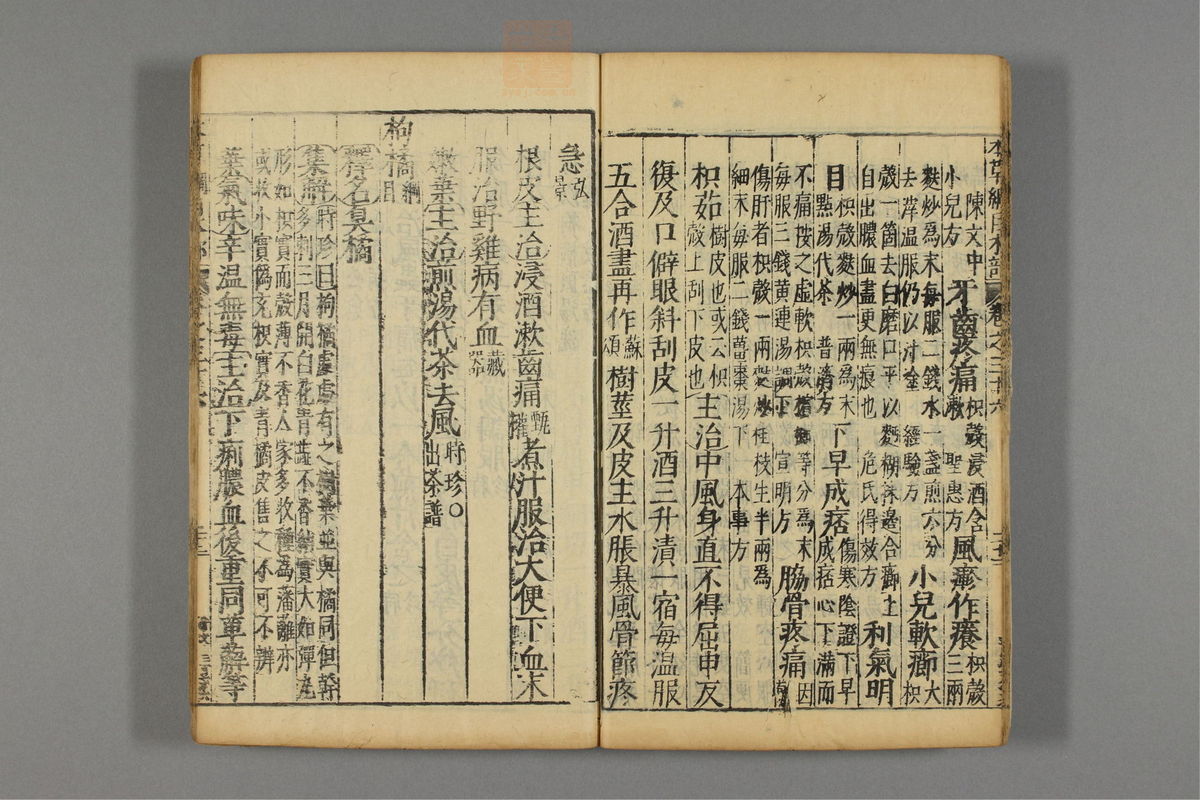 本草綱目木部 卷之三十六
陳文中小兒方 牙齒疼痛 枳殼浸酒含漱 聖惠方 風瘮作癢 枳殼三兩
麩炒為末每服二錢水一盞煎六分去滓温服仍以汁塗 經驗方 小兒軟癤 大枳
殼一箇去白磨口平以麪糊抹邊合癤上自出膿血盡更無痕也 危氏得效方 利氣明
目 枳殼麩炒一兩為末點湯代茶 普濟方 下早成痞 傷寒陰證下早成痞心下滿而
不痛按之虛軟枳殼檳榔等分為末每服三錢黃連湯調下 宣明方 脇骨疼痛 因驚
傷肝者枳殼一兩麩炒桂枝生半兩為細末每服二錢薑棗湯下 本事方
枳茹 樹皮也或云枳殼上刮下皮也 主治中風身直不得屈申反
復及口僻眼斜刮皮一升酒三升漬一宿每温服
五合酒盡再作 蘇頌 樹莖及皮主水脹暴風骨節疼
急 弘景
根皮主治浸酒漱齒痛 甄權 煮汁服治大便下血末
服治野雞病有血 藏器
嫩葉主治煎湯代茶去風 時珍○出茶譜
枸橘 綱目
釋名臭橘
集解 時珍曰枸橘處處有之樹葉並與橘同但幹多刺三月開白花青蕊不香結實大如彈丸
形如枳實而殼薄不香人家多收種為藩蘺亦或收小實偽充枳實及青橘皮售之不可不辨
葉氣味辛温無毒主治下痢膿血後重同萆薢等